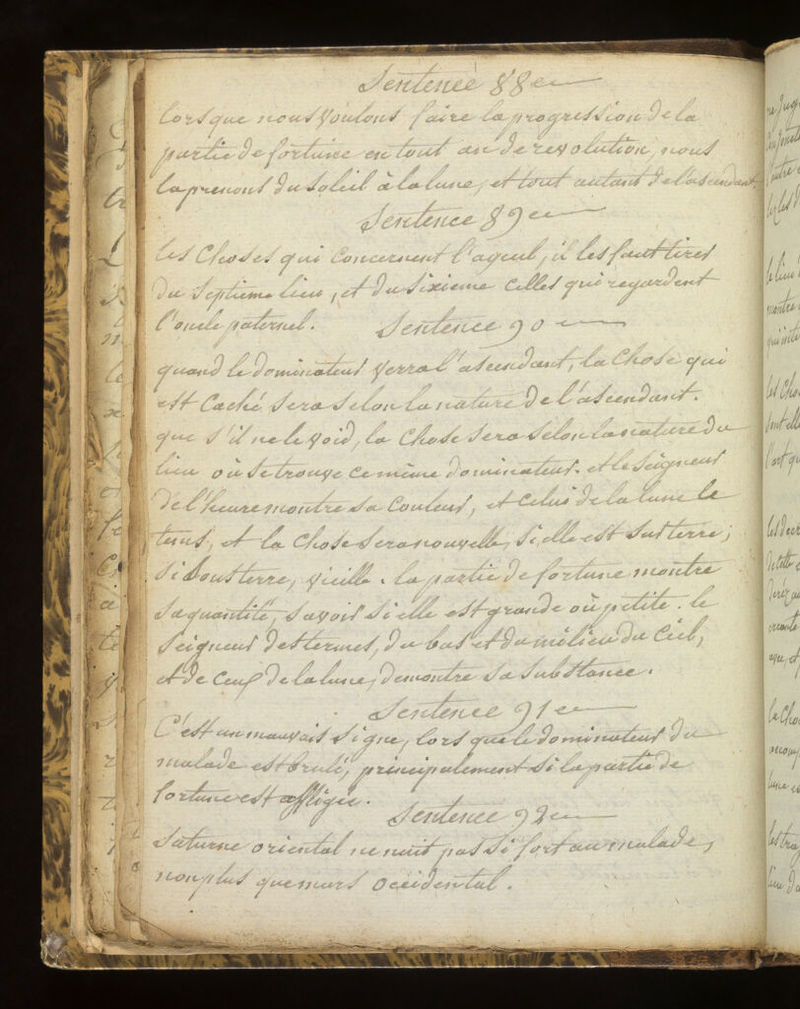 Sentence 88e
Lorsque nous voulons faire la progression de la
partie de fortune en tout an de revolution, nous
la prenons du soleil à la lune, et tout autant de l'ascendant.
Sentence 89e
Les Choses qui Concernent l'ayeul, il les faut tirer
Du Septieme lieu, et Du Sixieme Celles qui regardent
l'oncle paternel. Sentence 90
quand le Dominateur verra l'ascendant, la Chose qui
est Caché Sera Selon la nature De l'ascendant.
que S'il ne le void, la Chose Sera Selon la nature du
lieu où Se trouve Ce même Dominateur. et le Seigneur
De l'heure montre Sa Couleur, et Celui De la lune le
tems, et la Chose Sera nouvelle, Si elle est Sur terre;
Si Sous terre, vieille. la partie De fortune montre
Sa quantité, Savoir Si elle est grande où petite. le
Seigneur Des termes, Du bas et Du milieu Du Ciel,
et De Ceux De la lune, Demontre Sa Substance.
Sentence 91e
C'est un mauvais Signe, lors que le Dominateur Du
malade est brulé, principalement Si la partie De
fortune est affligée.
Sentence 92e
Saturne oriental ne nuit pas Si fort au malade,
non plus que mars occidental.